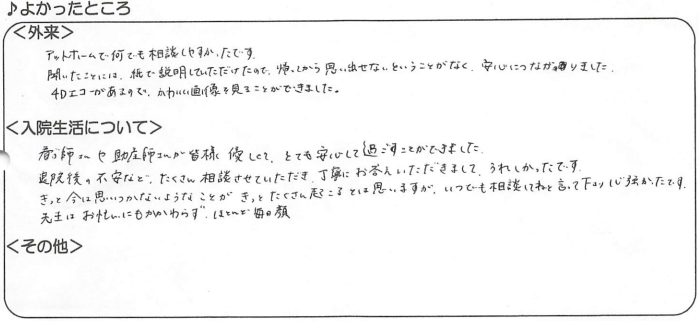 ♪よかったところ
<外来>
アットホームで何でも相談しやすかったです。
聞いたことには、紙で説明していただけたので、帰ってから思い出せないということがなく、安心につながりました。
4Dエコーがあるので、かわいい画像を見ることができました。
<入院生活について>
看ご師さんや助産師さんが皆様優しくて、とても安心して過ごすことができました。
退院後の不安など、たくさん相談させていただき、丁寧にお答えいただきまして、うれしかったです。
きっと今は思いつかないようなことがきっとたくさん起こるとは思いますが、いつでも相談してねと言って下さり心強かったです。
先生はお忙しいにもかかわらず、ほとんど毎日顔
<その他>